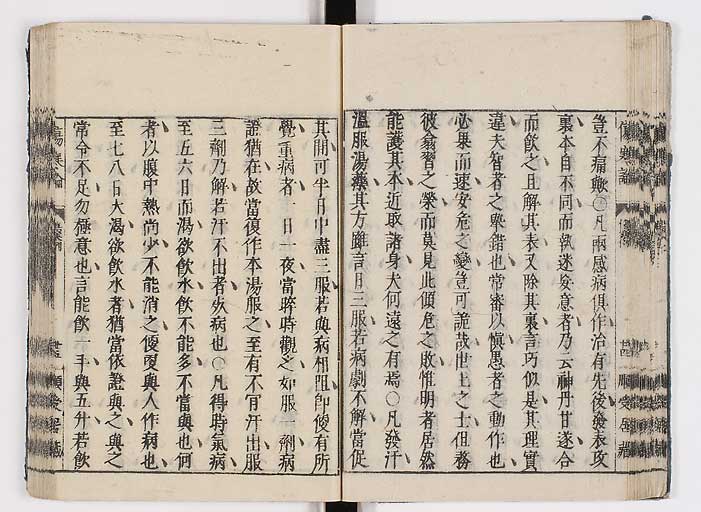 豈不痛歟○凡兩感病俱作治有先後發表攻
裏本自不同而執迷妄意者乃云神丹甘遂合
而飲之且解其表又除其裏言巧似是其理實
違夫智者之舉錯也常審以愼愚者之動作也
必果而速安危之變豈可詭哉世上之士但務
彼翕習之榮而莫見此傾危之敗惟明者居然
能護其本近取諸身夫何遠之有焉○凡發汗
溫服湯藥其方雖言日三服若病劇不解當促
其間可半日中盡三服若與病相阻即便有所
覺重病者一日一夜當晬時觀之如服一劑病
證猶在故當復作本湯服之至有不肎汗出服
三劑乃解若汗不出者死病也○凡得時氣病
至五六日而渴欲飲水飲不能多不當與也何
者以腹中熱尚少不能消之便更與人作病也
至七八日大渴欲飲水者猶當依證與之與之
常令不足勿極意也言能飲一斗與五升若飲
傷寒論